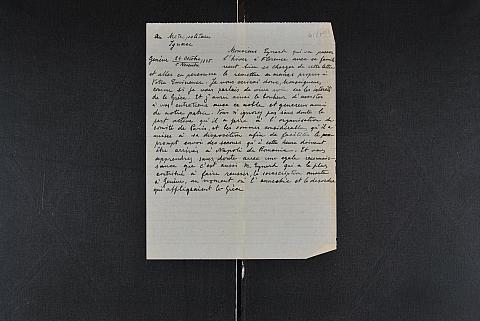 Au Métropolitain
Ignace
Genève 24 Octobre 1825.
5 Novembre
Monsieur Eynard qui va passer
l'hiver à Florence avec sa famille
veut bien se charger de cette lettre
et aller en personne la remettre en mains propres à
Votre Eminence. Je vous écrirai donc, Monseigneur,
comme si je vous parlais de vive voix sur les intérêts
de la Grèce. Et j'aurai ainsi le bonheur d'assister
à vos entretiens avec ce noble et généreux ami
de notre patrie. Vous n'ignorez pas sans doute la
part active qu'il a prise à l'organisation du
comité de Paris, et les sommes considérables qu'il a
mises à sa disposition afin de faciliter le plus
prompt envoi des secours qui à cette heure doivent
être arrivés à Napoli de Romanie. Et vous
apprendrez sans doute avec une égale reconnais-
sance que c'est aussi M. Eynard qui a le plus
contribué à faire réussir la souscription ouverte
à Genève, au moment où l'anarchie et le désordre
qui affligeaient la Grèce